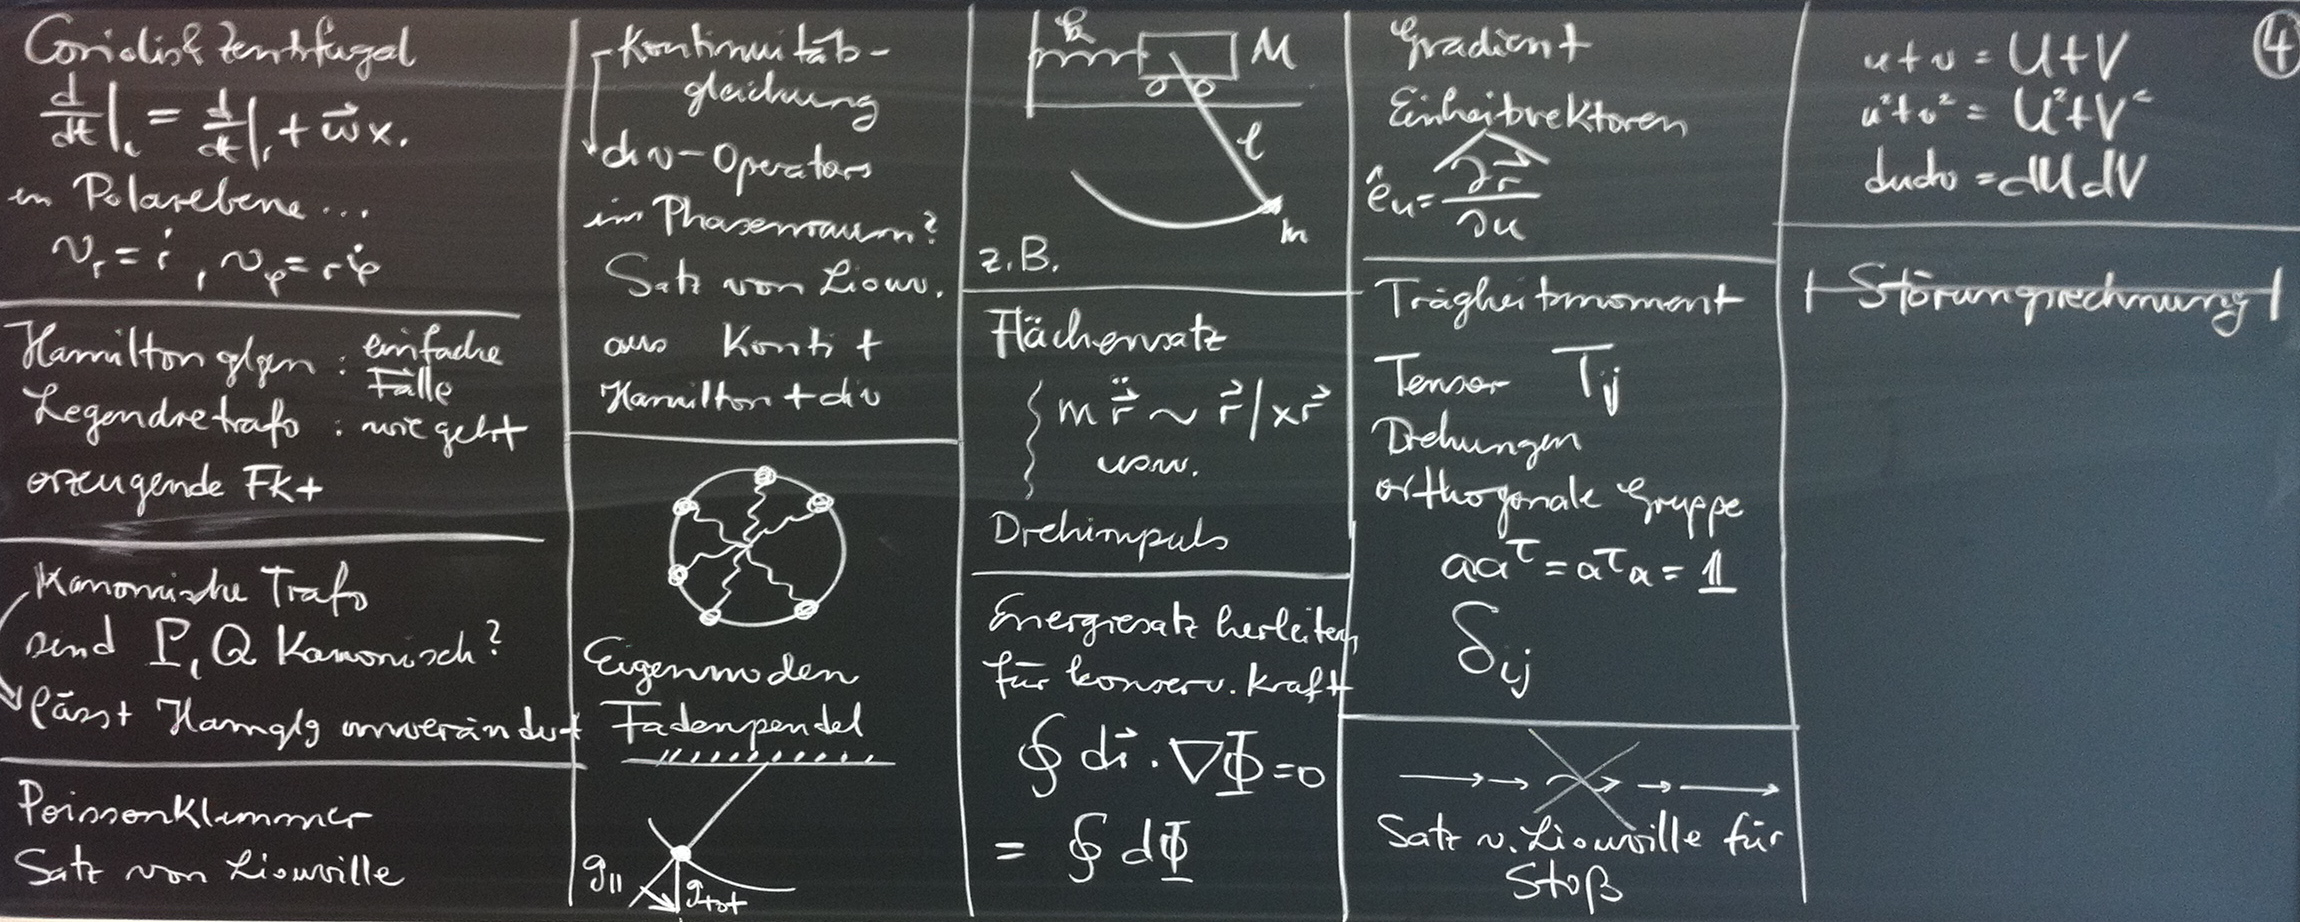 Coriolis & Zentrifugal
d/dt|_i = d/dt|_r + ω⃗ x.
in Polarebene ...
v_r = ṙ , v_φ = rφ̇
Hamilton glgen : einfache
Fälle
Legendretrafo : wie geht
erzeugende Fkt
Kanonische Trafo
sind P, Q Kanonisch?
lässt Hamglg unverändert
Poissonklammer
Satz von Liouville
Kontinuitäts-
gleichung
div-Operators
im Phasenraum?
Satz von Liouv.
aus Konti +
Hamilton + div
Eigenmoden
Fadenpendel
g_||
g_tot
k
M
l
m
z.B.
Flächensatz
m r⃗̈ ~ r⃗ / x r⃗
usw.
Drehimpuls
Energiesatz herleiten
für konserv. Kraft
∮ dr⃗ · ∇Φ = 0
= ∮ dΦ
Gradient
Einheitsvektoren
ê_u = ∂r⃗/∂u
Trägheitsmoment
Tensor T_ij
Drehungen
orthogonale Gruppe
aa^T = a^T a = 𝟙
δ_ij
Satz v. Liouville für
Stoß
④
u + v = U + V
u² + v² = U² + V²
du dv = dU dV
Störungsrechnung